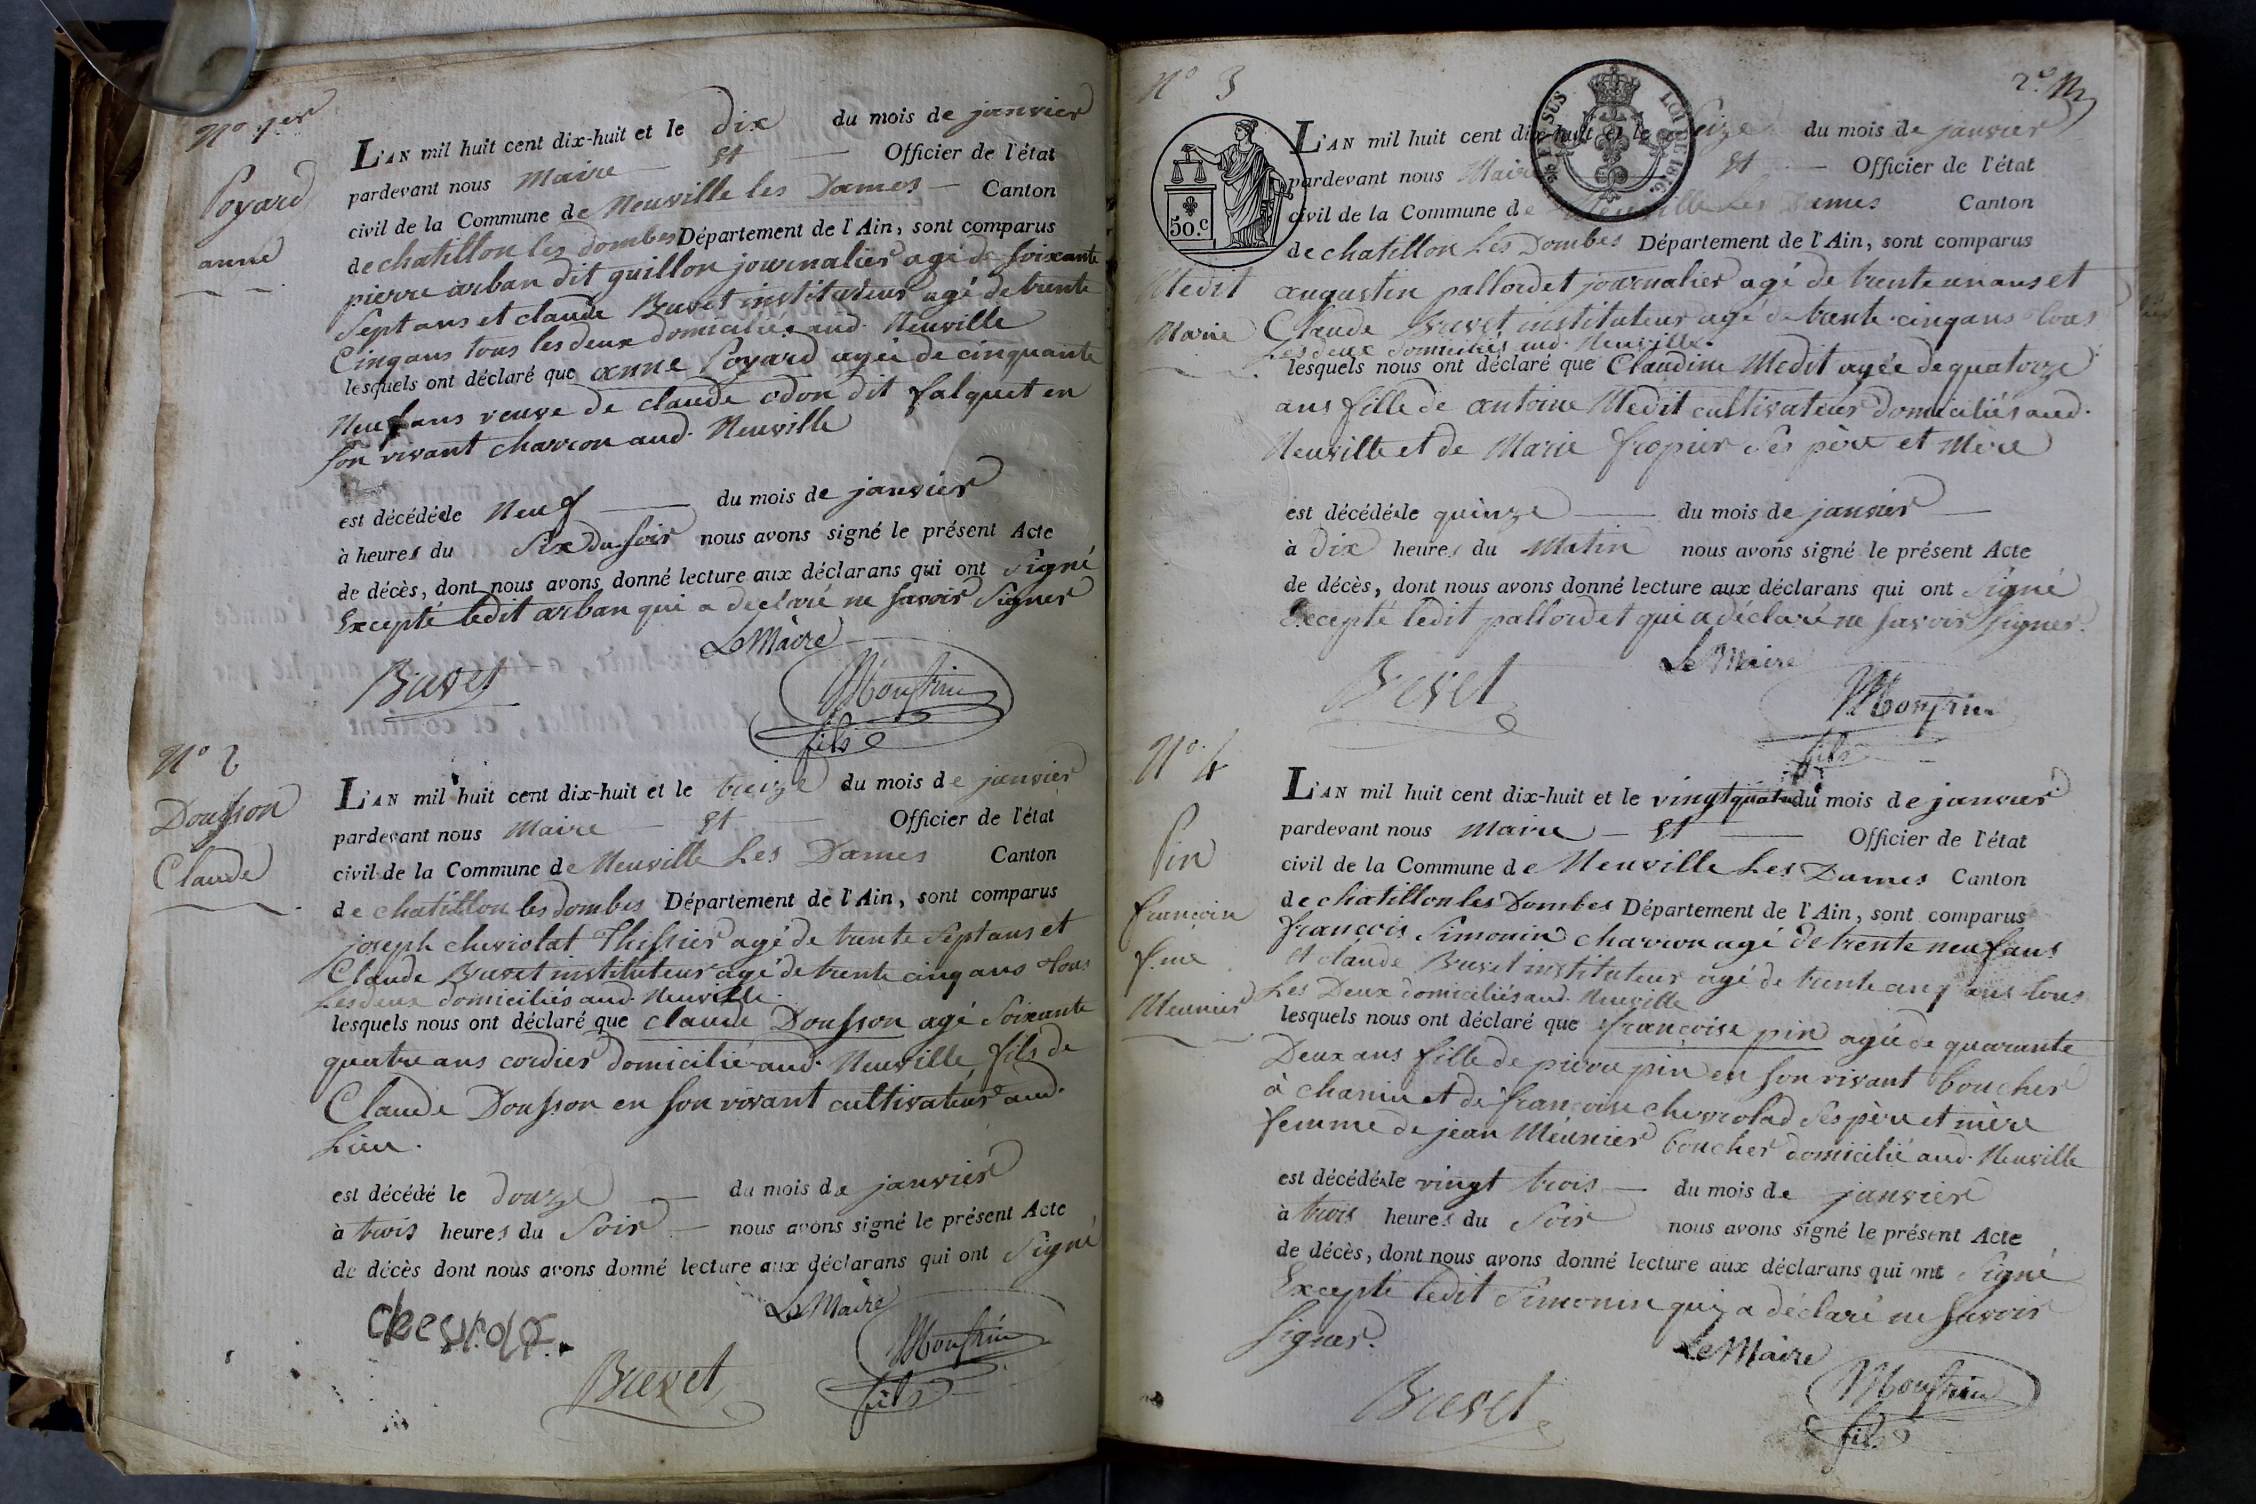 No 1er
Poyard
anne
L'AN mil huit cent dix-huit et le dix du mois de janvier
pardevant nous Maire et Officier de l'état
civil de la Commune de Neuville les Dames Canton
de chatillon les dombes Département de l'Ain, sont comparus
pierre arban dit guillon journalier agé de soixante
Sept ans et claude Buvet instituteur agé de trente
Cinq ans tous les deux domiciliés aud. Neuville
lesquels ont déclaré que anne Poyard agée de cinquante
Neuf ans veuve de claude odon dit falquet en
son vivant charron aud. Neuville
est décédée le Neuf du mois de janvier
à heures du Six du soir nous avons signé le présent Acte
de décès, dont nous avons donné lecture aux déclarans qui ont signé
Excepté ledit arban qui a déclaré ne savoir Signer
Le Maire
Buvet
Monfrin
fils
No 2
Dousson
Claude
L'AN mil huit cent dix-huit et le treize du mois de janvier
pardevant nous Maire et Officier de l'état
civil de la Commune de Neuville Les Dames Canton
de chatillon les dombes Département de l'Ain, sont comparus
joseph chevrolat Thissier agé de trente Sept ans et
Claude Buvet instituteur agé de trente cinq ans tous
Les deux domiciliés aud. Neuville.
lesquels nous ont déclaré que claude Dousson agé Soixante
quatre ans cordier domicilié aud. Neuville, fils de
Claude Dousson en son vivant cultivateur aud.
Lieu.
est décédé le douze du mois de janvier
à trois heures du Soir nous avons signé le présent Acte
de décès dont nous avons donné lecture aux déclarans qui ont Signé
Le Maire
Buvet
Monfrin
fils
No 3
2e
ET SUS
LOI DE 1816.
50.c
Medit
Marie
L'AN mil huit cent dix-huit et le seize du mois de janvier
pardevant nous Maire et Officier de l'état
civil de la Commune de Neuville Les Dames Canton
de chatillon Les Dombes Département de l'Ain, sont comparus
augustin pallordet journalier agé de trente un ans et
Claude Buvet instituteur agé de trente cinq ans tous
Les deux domiciliés aud. Neuville.
lesquels nous ont déclaré que Claudine Medit agée de quatorze
ans fille de antoine Medit cultivateur domiciliés aud.
Neuville et de Marie fropier ses père et Mère
est décédée le quinze du mois de janvier
à dix heures du Matin nous avons signé le présent Acte
de décès, dont nous avons donné lecture aux déclarans qui ont Signé
Excepté ledit pallordet qui a déclaré ne savoir signer.
Le Maire
Buvet
Monfrin
fils
No. 4
Pin
françoise
f.me
Meunier
L'AN mil huit cent dix-huit et le vingt quatre du mois de janvier
pardevant nous Maire et Officier de l'état
civil de la Commune de Neuville Les Dames Canton
de chatillon les Dombes Département de l'Ain, sont comparus
françois Simonin charron agé de trente neuf ans
et claude Buvet instituteur agé de trente cinq ans tous
Les Deux domiciliés aud. Neuville
lesquels nous ont déclaré que françoise pin agée de quarante
Deux ans fille de pierre pin en son vivant boucher
à chanin et de françoise chevrolad ses père et mère
femme de jean Meunier boucher domicilié aud. Neuville
est décédée le vingt trois du mois de janvier
à trois heures du Soir nous avons signé le présent Acte
de décès, dont nous avons donné lecture aux déclarans qui ont Signé
Excepté ledit Simonin qui a déclaré ne savoir
signer.
Le Maire
Buvet
Monfrin
fils